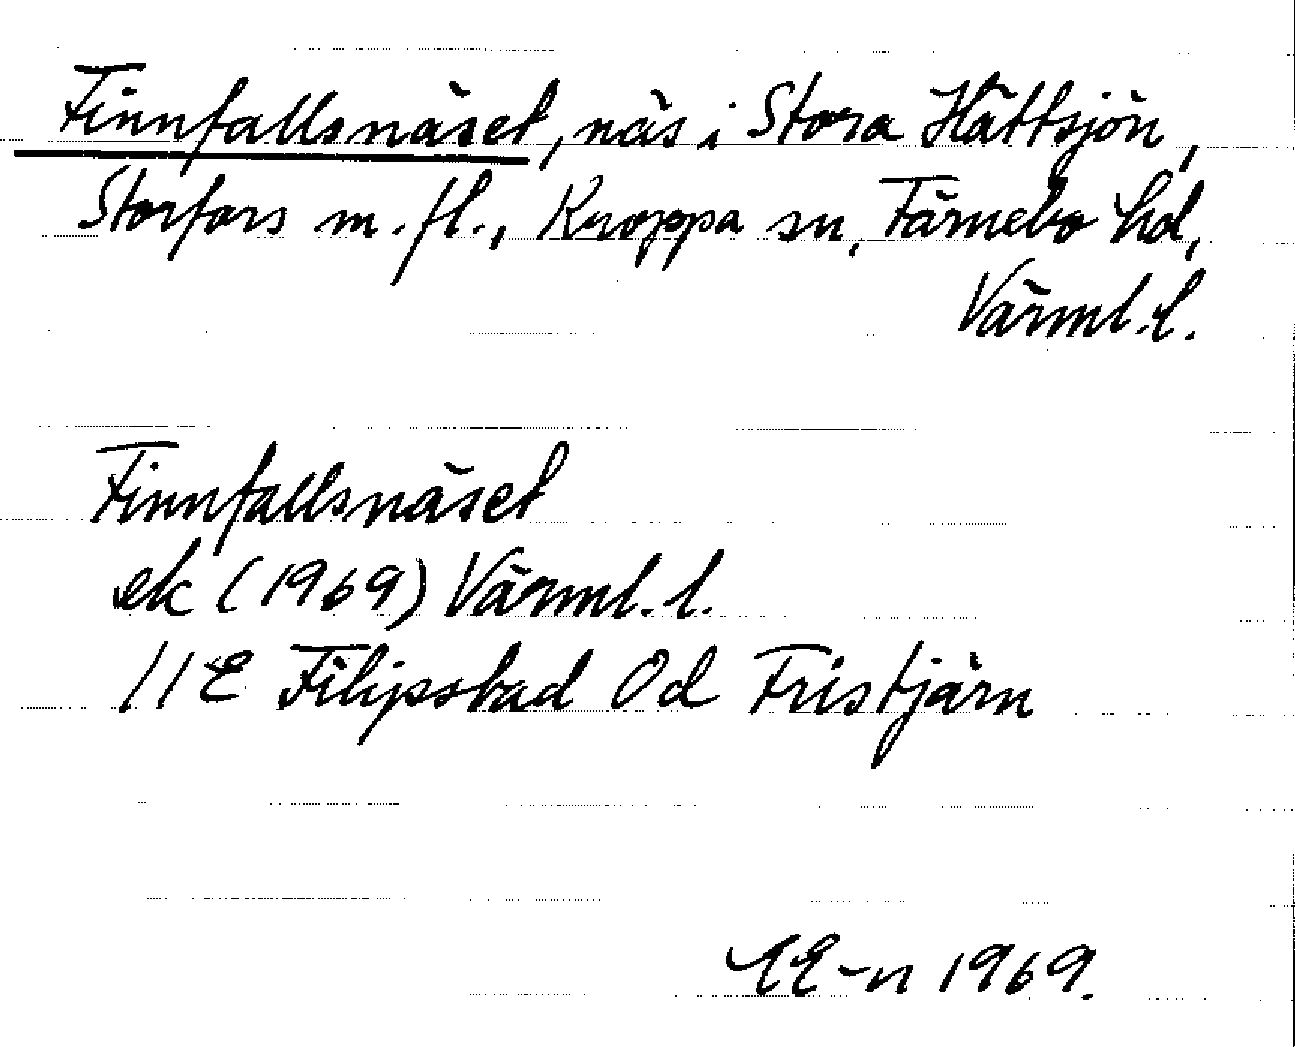 Finnfallsnäset, näs i Stora Hättsjön,
Storfors m. fl., Kroppa sn, Färnebo hd,
Värml. l.
Finnfallsnäset
ek (1969) Värml. l.
11E Filipstad 0d Fristjärn
EE-n 1969.